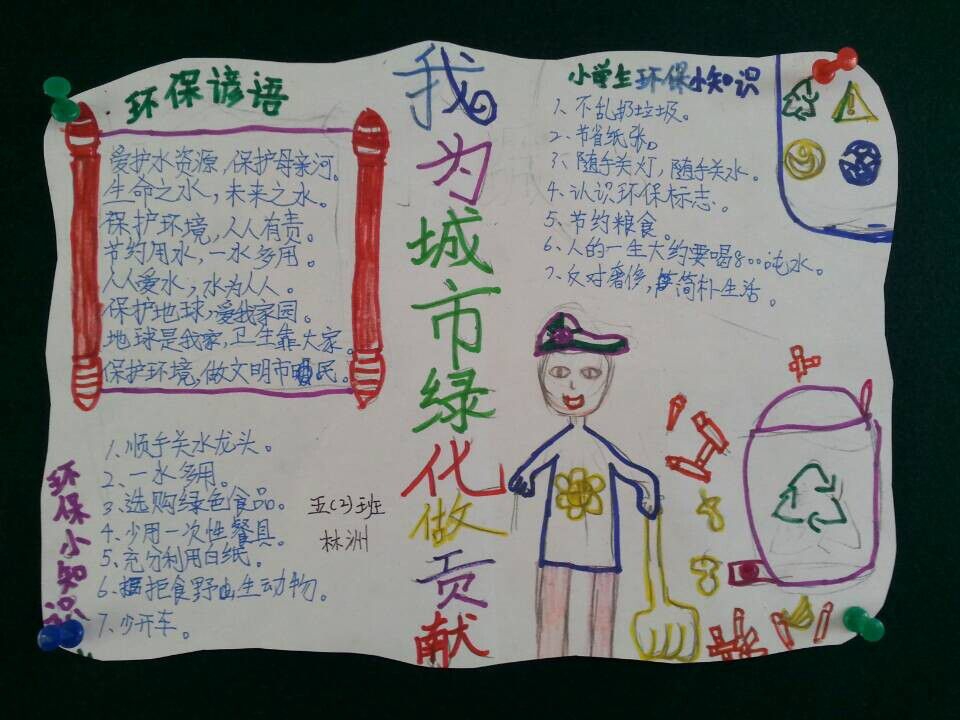 环保谚语
爱护水资源，保护母亲河。
生命之水，未来之水。
保护环境，人人有责。
节约用水，一水多用。
人人爱水，水为人人。
保护地球，爱我家园。
地球是我家，卫生靠大家。
保护环境，做文明市民。
环保小知识
1、顺手关水龙头。
2、一水多用。
3、选购绿色食品。
4、少用一次性餐具。
5、充分利用白纸。
6、拒食野生动物。
7、少开车。
五(2)班
林洲
我为城市绿化做贡献
小学生环保小知识
1、不乱扔垃圾。
2、节省纸张。
3、随手关灯，随手关水。
4、认识环保标志。
5、节约粮食。
6、人的一生大约要喝800吨水。
7、反对奢侈，简朴生活。